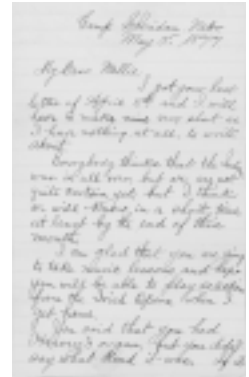 Camp Sheridan Nebr
May 5. 1877
My Dear Mollie
I got your last
letter of April 8th and I will
have to make mine very short as
I have nothing at all to write
about.
Everybody thinks that the Indian
war is all over but we are not
quite certain yet, but I think
we will know in a short time
at least by the end of this
month.
I am glad that you are going
to take music lessons and hope
you will be able to play
from the before when I
get home.
You said that you had
organ, but you didn't
say what kind it was.